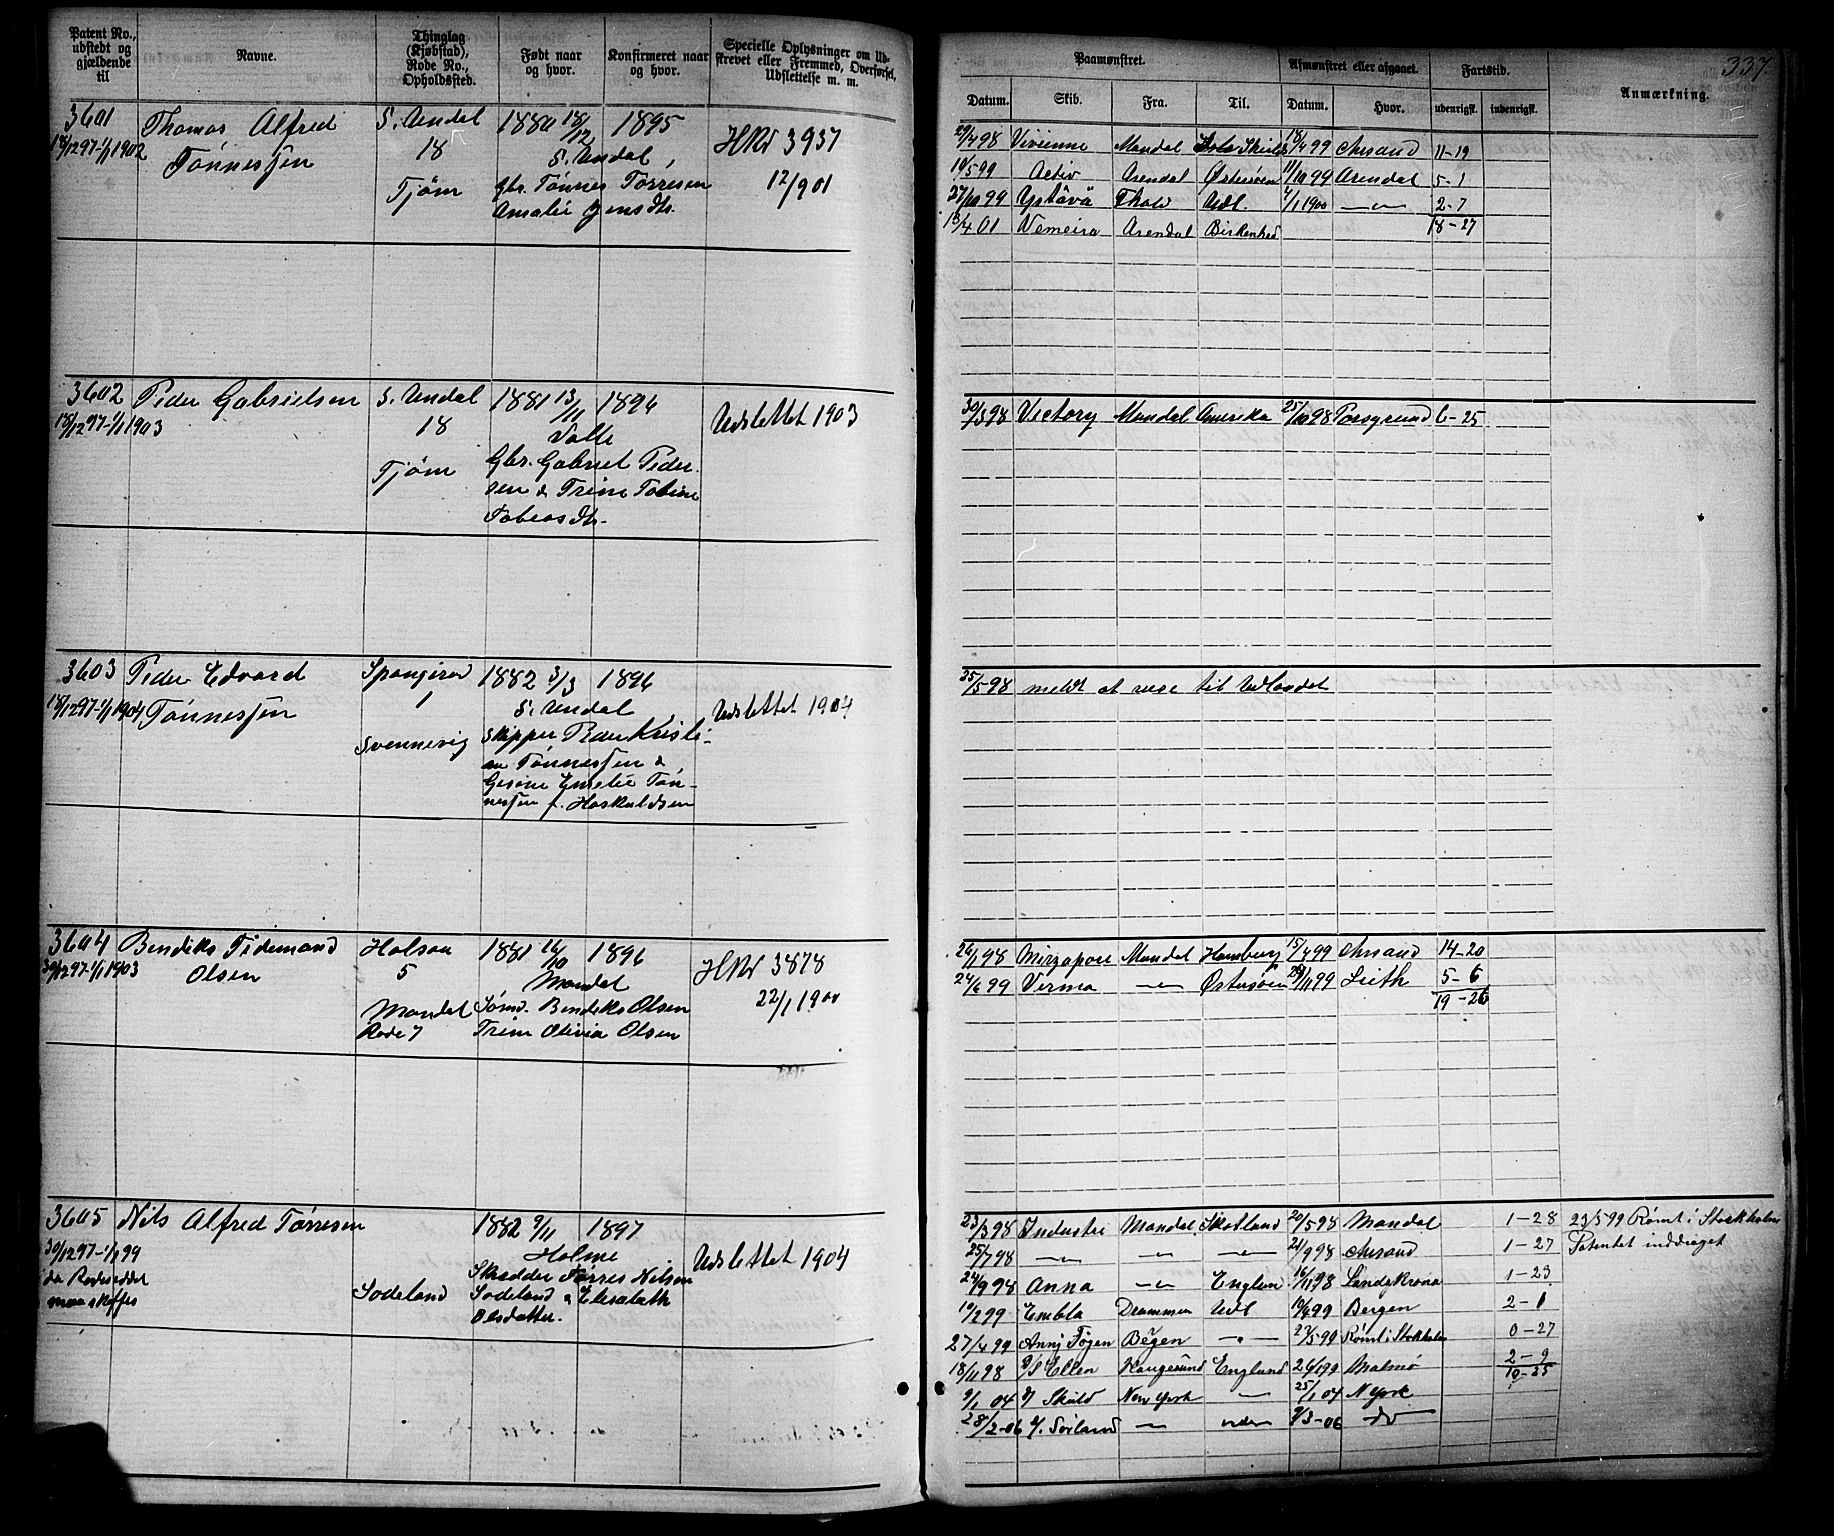 337.
Patent No.,
udstedt og
gjældende
til
Navne.
Thinglag
(Kjøbstad),
Rode No.,
Opholdssted.
Født naar
og hvor.
Konfirmeret naar
og hvor.
Specielle Oplysninger om Ud-
skrevet eller Fremmed, Overførsel,
Udslettelse m. m.
Paamønstret.
Afmønstret eller afgaaet.
Fartstid.
Anmærkning.
Datum. Skib. Fra. Til. Datum. Hvor. udenrigsk. indenrigsk.
3601 Thomas Alfred S. Undal 1880 18/12 1895
18/12 97-1/1 1902 Tønnessen 18 S. Undal, HNr 3937
Tjøm Gbr. Tønnes Tørresen 12/9 01
Amalie Jensdtr.
29/4 98 Vivienne Mandal 18/4 99 Chrsand 11-19
10/5 99 Activ Arendal Østersøen 11/10 99 Arendal 5-1
27/10 99 Udl. 7/1 1900 —"— 2-7
13/4 01 Arendal Birkenhed 18-27
3602 Peder Gabrielsen S. Undal 1881 13/11 1896
18/12 97-1/1 1903 18 Valle Udslettet 1903
Tjøm Gbr. Gabriel Peder-
sen & Trine Tobine
Tobiasdtr.
30/3 98 Victory Mandal Amerika 25/10 98 Porsgrund 6-25
3603 Peder Edvard Spangirød 1882 3/3 1896
18/12 97-1/1 1904 Tønnessen 1 S. Undal Udslettet 1904
Svennevig Skipper Peder Kristi-
an Tønnessen &
Gesine Emelie Tøn-
nessen f. Haskuldsen
25/5 98 meldt at reise til Udlandet
3604 Bendiks Tidemand Halsaa 1881 16/10 1896
30/12 97-1/1 1903 Olsen 5 Mandal HNr 3878
Mandal Sømd. Bendiks Olsen 22/1 1900
Rode 7 Trine Olivia Olsen
26/1 98 Mirzapore Mandal Hamburg 15/4 99 Chrsand 14-20
24/6 99 Verma —"— Østersøen 29/11 99 Leith 5-6
19-26
3605 Nils Alfred Tørresen 1882 9/11 1897
30/12 97-1/1 99 Holme Udslettet 1904
da Rodeseddel Skrædder Tørres Nilsen
maa skaffes Sodeland Sodeland & Elisabeth
Olsdatter.
23/3 98 Industri Mandal Skotland 20/5 98 Mandal 1-28 23/5 99 Rømt i Stockholm
25/7 98 —"— —"— —"— 21/9 98 Chrsand 1-27 Patentet inddraget
24/9 98 Anna —"— Englan 16/11 98 Landskrona 1-23
10/2 99 Embla Drammen Udl 10/4 99 Bergen 2-1
27/4 99 Anny Føyen Begen —"— 23/5 99 Rømt i Stokholm 0-27
18/11 98 D/S Ellen Haugesund England 26/1 99 Malmø 2-9
10-25
9/1 04 Skuld New York —"— 25/1 04 N York
28/2-06 Sørland —"— 9/3-06 do